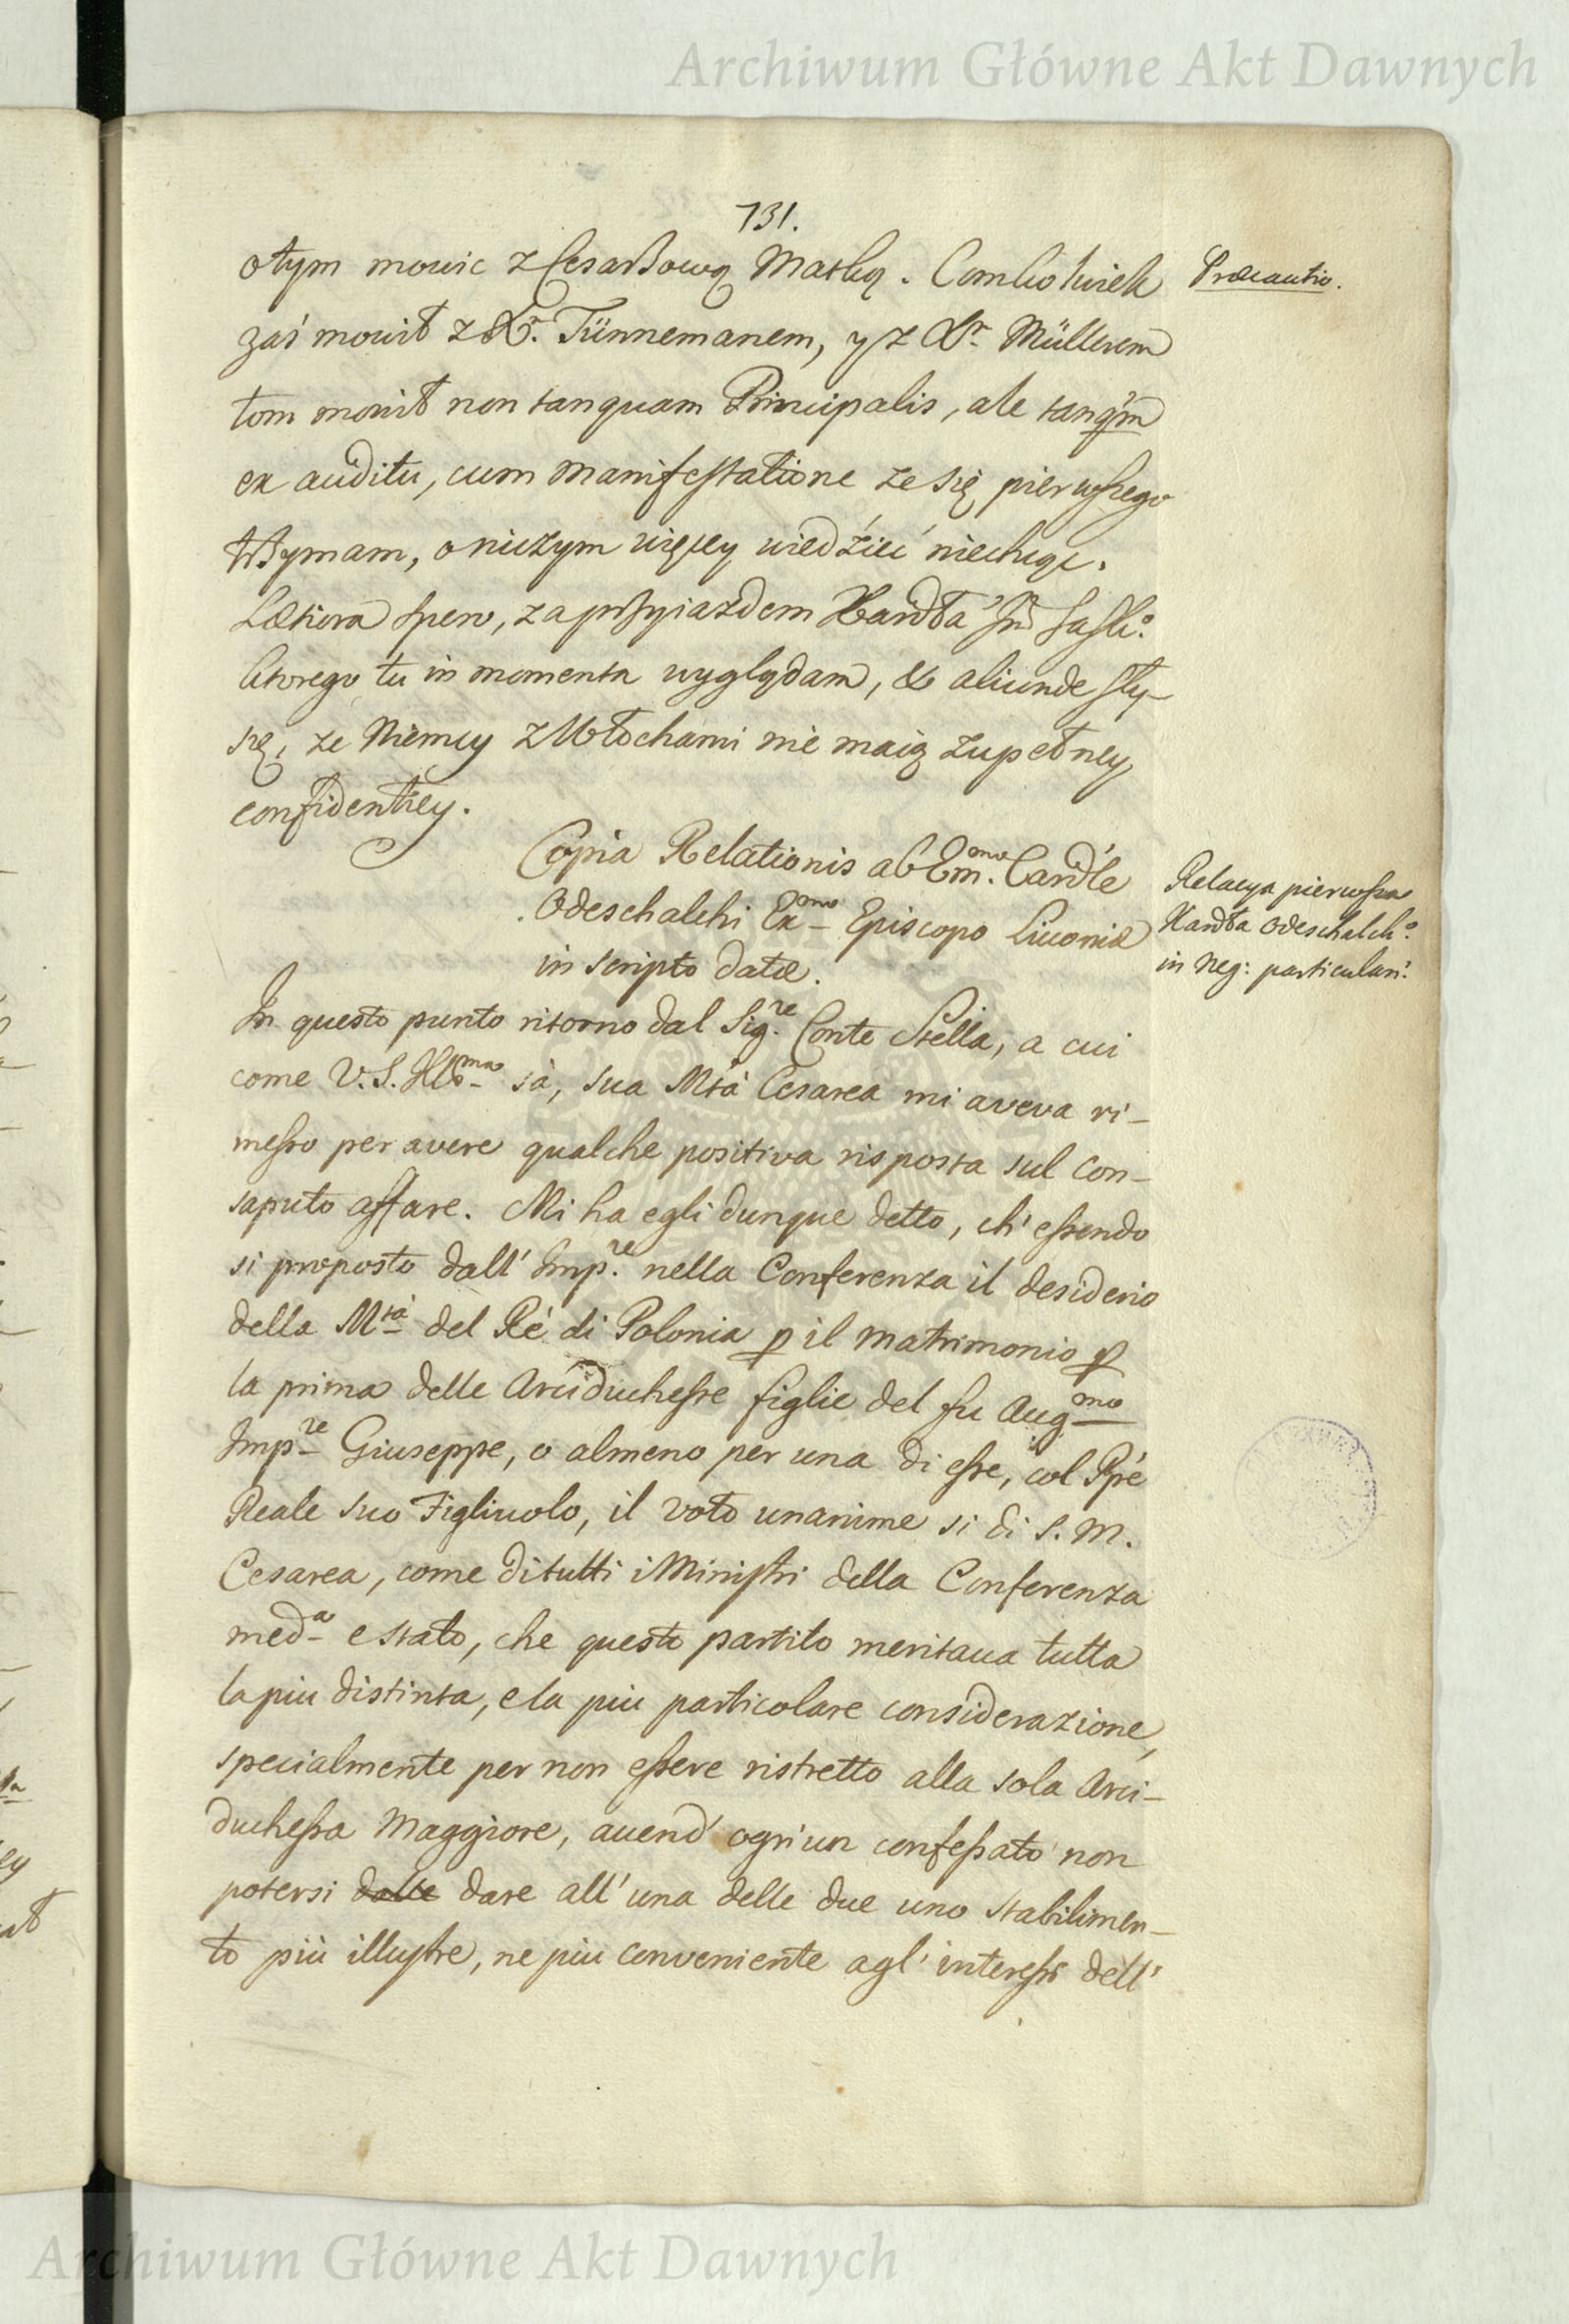 Archiwum Główne Akt Dawnych
731.
o tym mowic z Cesarzową Matką. Comkolwiek
Præcautio.
zaś mowił z Xr. Tünnemanem, y z Xr. Müllerem
tom mowił non tanquam Principalis, ale tanqm
ex auditu, cum manifestatione że się pierwszego
trzymam, o niczym więcey wiedźieć niechcąc.
Lætiora spero, za przyiazdem Kardła
ktorego tu in momenta wyglądam, & aliunde sły-
szę, że Niemcy z Włochami nie maią zupełney
confidentiey.
Copia Relationis ab Emmo. Cardle
Odeschalchi Exmo Episcopo Livoniæ
in scripto datæ.
Relacya pierwsza
Kardła Odeschalcho.
in Neg: particulari.
In questo punto ritorno dal Sigre. Conte Stella, a cui
come V.S. Illma sà, sua Mtà Cesarea mi aveva ri-
messo per avere qualche positiva risposta sul con-
saputo affare. Mi ha egli dunque detto, ch' essendo
si proposto dall' Impre. nella Conferenza il desiderio
della Mtà del Rè di Polonia p il matrimonio p
la prima delle Arciduchesse figlie del fu Augmo
Impre Giuseppe, o almeno per una di esse, col Ppe
Reale suo Figliuolo, il voto unanime si di S. M.
Cesarea, come di tutti i Ministri della Conferenza
meda e stato, che questo partito meritaua tutta
la piu distinta, e la piu particolare considerazione,
specialmente per non essere ristretto alla sola Arci-
duchessa Maggiore, auend' ogn'un confessato non
potersi dalle dare all' una delle due uno stabilimen-
to più illustre, ne piu conveniente agl' interessi dell'
Archiwum Główne Akt Dawnych